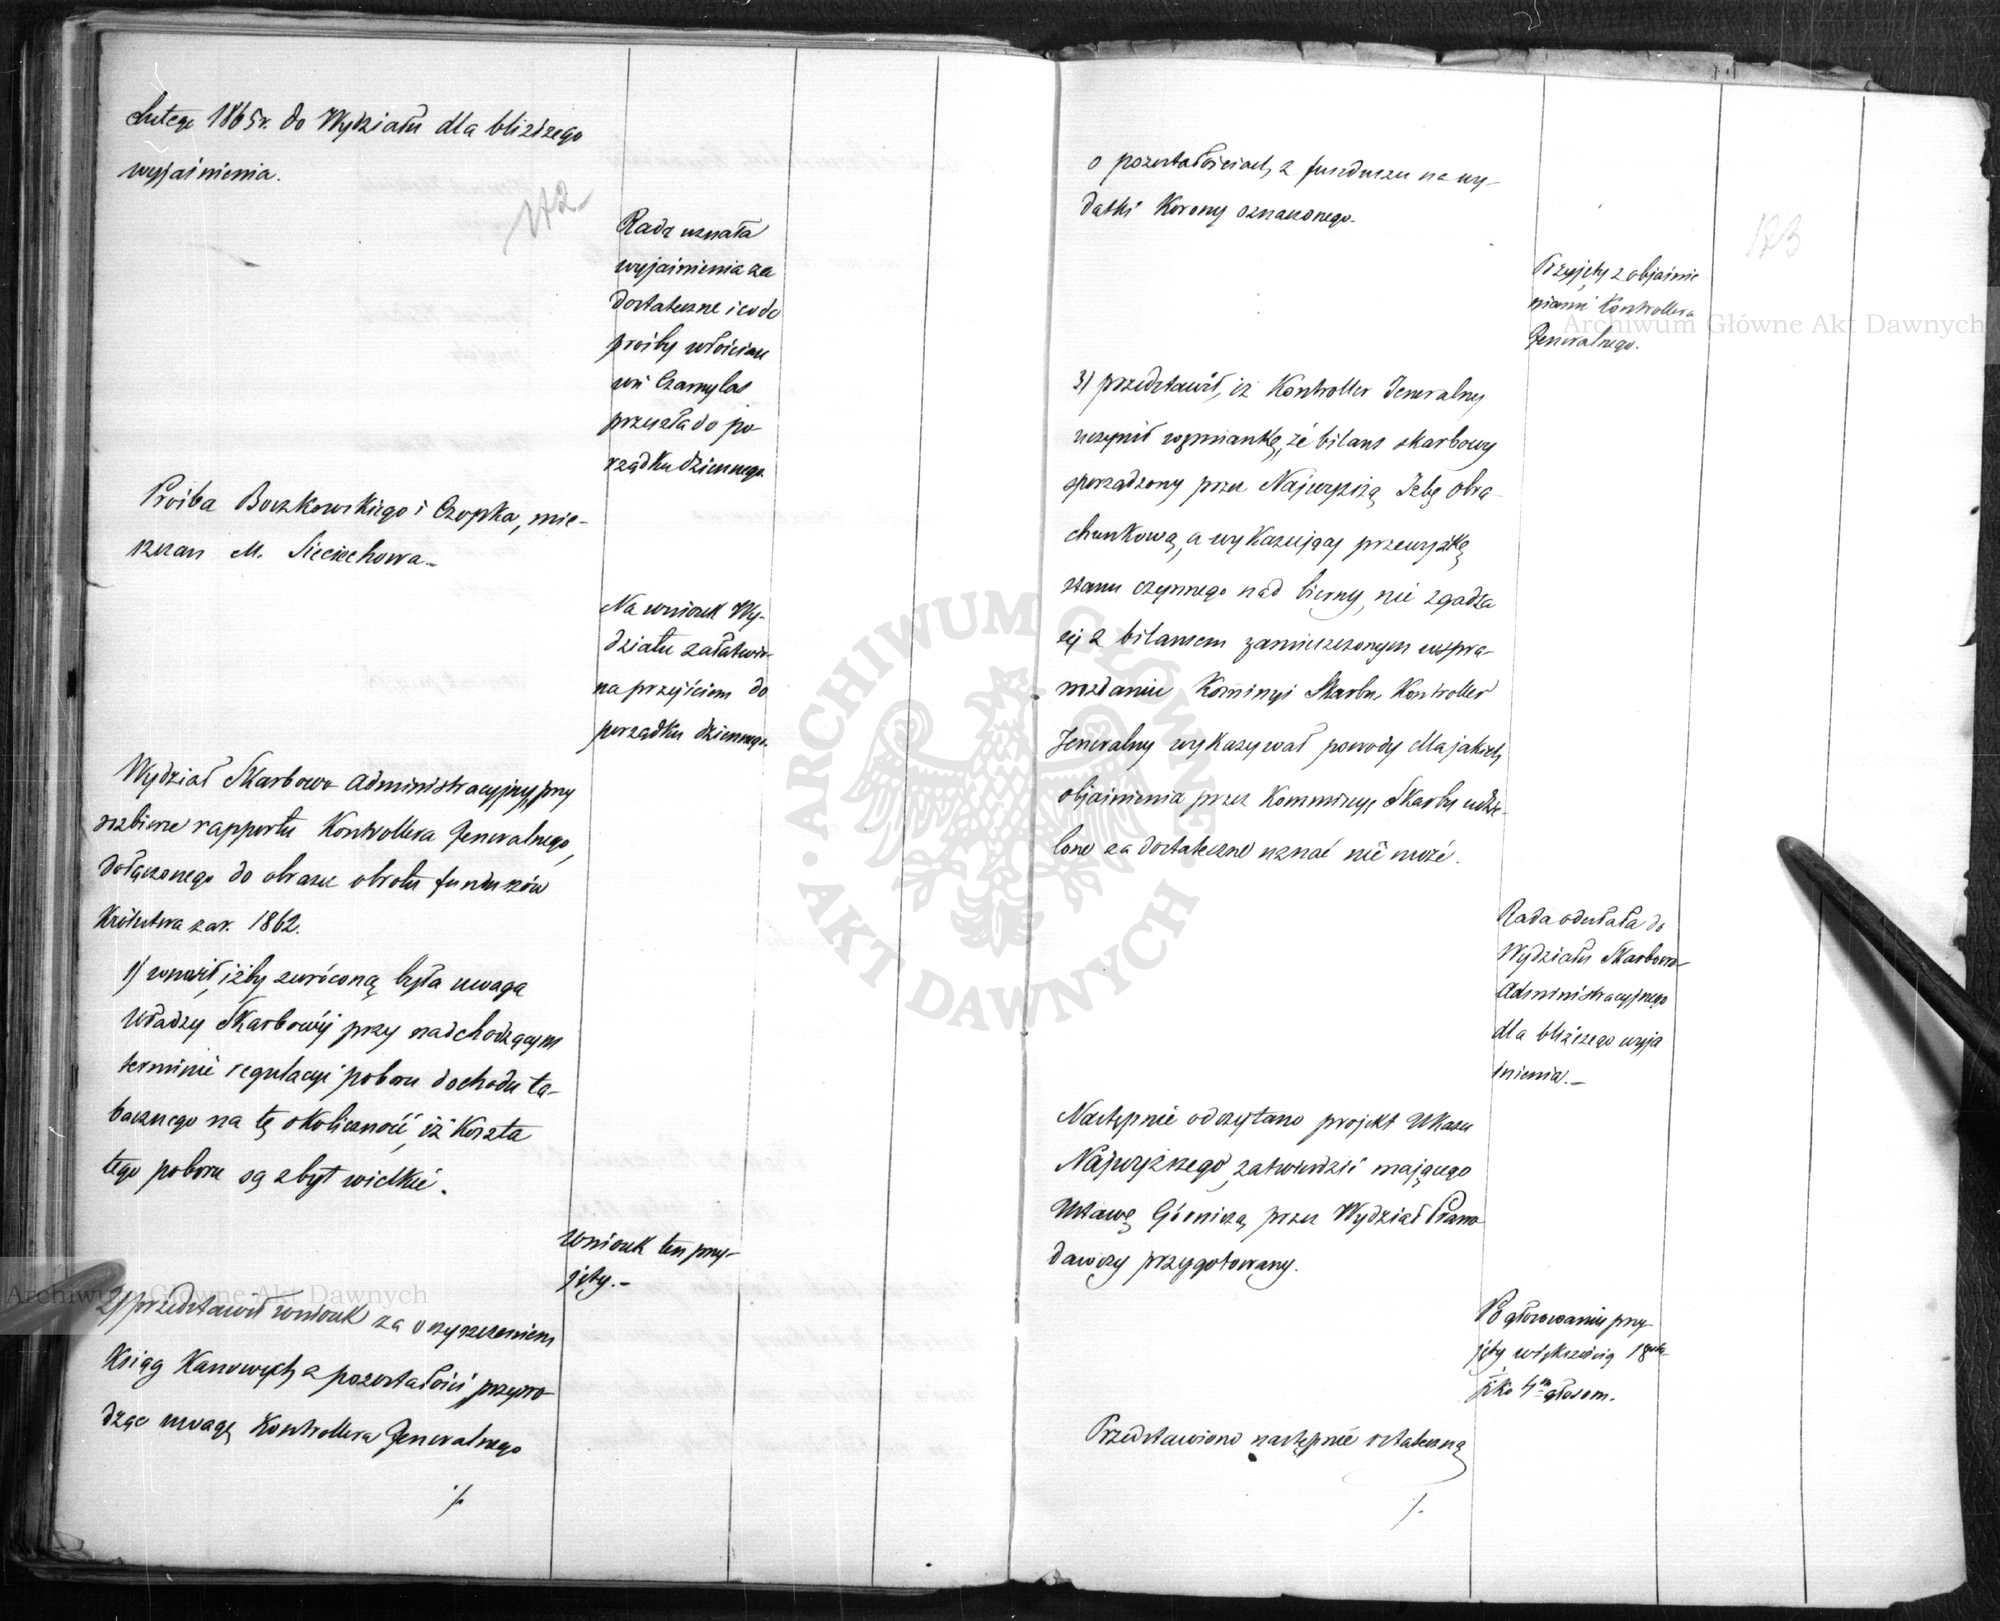 Lutego 1865 r. do Wydziału dla bliższego
wyjaśnienia.
172
Rada uznała
wyjaśnienia za
dostateczne i co do
prośby włościan
wsi Czarnylas
przeszła do po-
rządku dziennego.
Prośba Boczkowskiego i Czopka, mie-
szczan M. Sieciechowa.-
Na wniosek Wy-
działu załatwio-
na przejściem do
porządku dziennego.
Wydział Skarbowo Administracyjny, przy
rozbiorze rapportu Kontrollera Jeneralnego,
dołączonego do obrazu obrotu funduszów
Królestwa za r. 1862.
1) wnosił, iżby zwróconą była uwaga
Władzy Skarbowéj przy nadchodzącym
terminie regulacyi poboru dochodu ta-
bacznego na tę okoliczność, iż koszta
tego poboru są zbyt wielkie.
Wniosek ten przy-
jęty.-
2) przedstawił wniosek za oczyszczeniem
Ksiąg Kassowych z pozostałości przywo-
dząc uwagę Kontrollera Jeneralnego
./.
o pozostałościach z funduszu na wy-
datki Korony oznaczonego.
173
Przyjęty z objaśnie
niami Kontrollera
Jeneralnego.
3) przedstawił, iż Kontroller Jeneralny
uczynił wzmiankę, że bilans skarbowy
sporządzony przez Najwyższą Izbę Obra-
chunkową, a wykazujący przewyżkę
stanu czynnego nad bierny, nie zgadza
się z bilansem zamieszczonym w spra-
wozdaniu Kom̄isyi Skarbu, Kontroller
Jeneralny wykazywał powody dla jakich
objaśnienia przez Kommissyę Skarbu udzie-
lone za dostateczne uznać nie może.
Rada odesłała do
Wydziału Skarbowo-
Administracyjnego
dla bliższego wyja
śnienia.-
Następnie odczytano projekt Ukazu
Najwyższego, zatwierdzić mającego
Ustawę Górniczą przez Wydział Prawo
dawczy przygotowany.
Po głosowaniu przy-
jęty większością 18
głosom.
Przedstawiono następnie ostateczną
./.
Archiwum Główne Akt Dawnych
Archiwum Główne Akt Dawnych
ARCHIWUM GŁÓWNE
AKT DAWNYCH